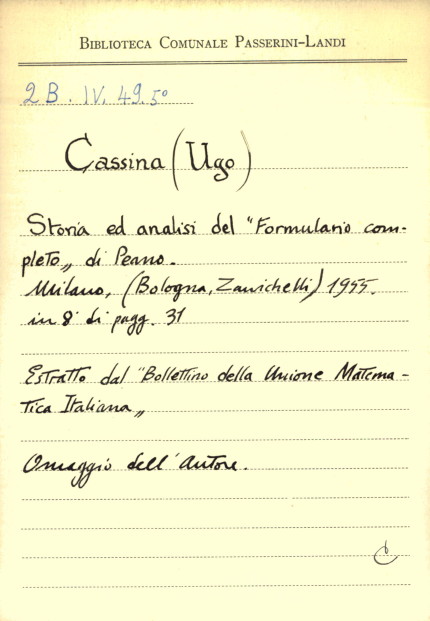 BIBLIOTECA COMUNALE PASSERINI-LANDI
2B. IV. 49.5°
Cassina (Ugo)
Storia ed analisi del "Formulario com-
pleto„ di Peano.
Milano, (Bologna, Zanichelli) 1955.
in 8° di pagg. 31
Estratto dal "Bollettino della Unione Matema-
tica Italiana„
Omaggio dell'Autore.